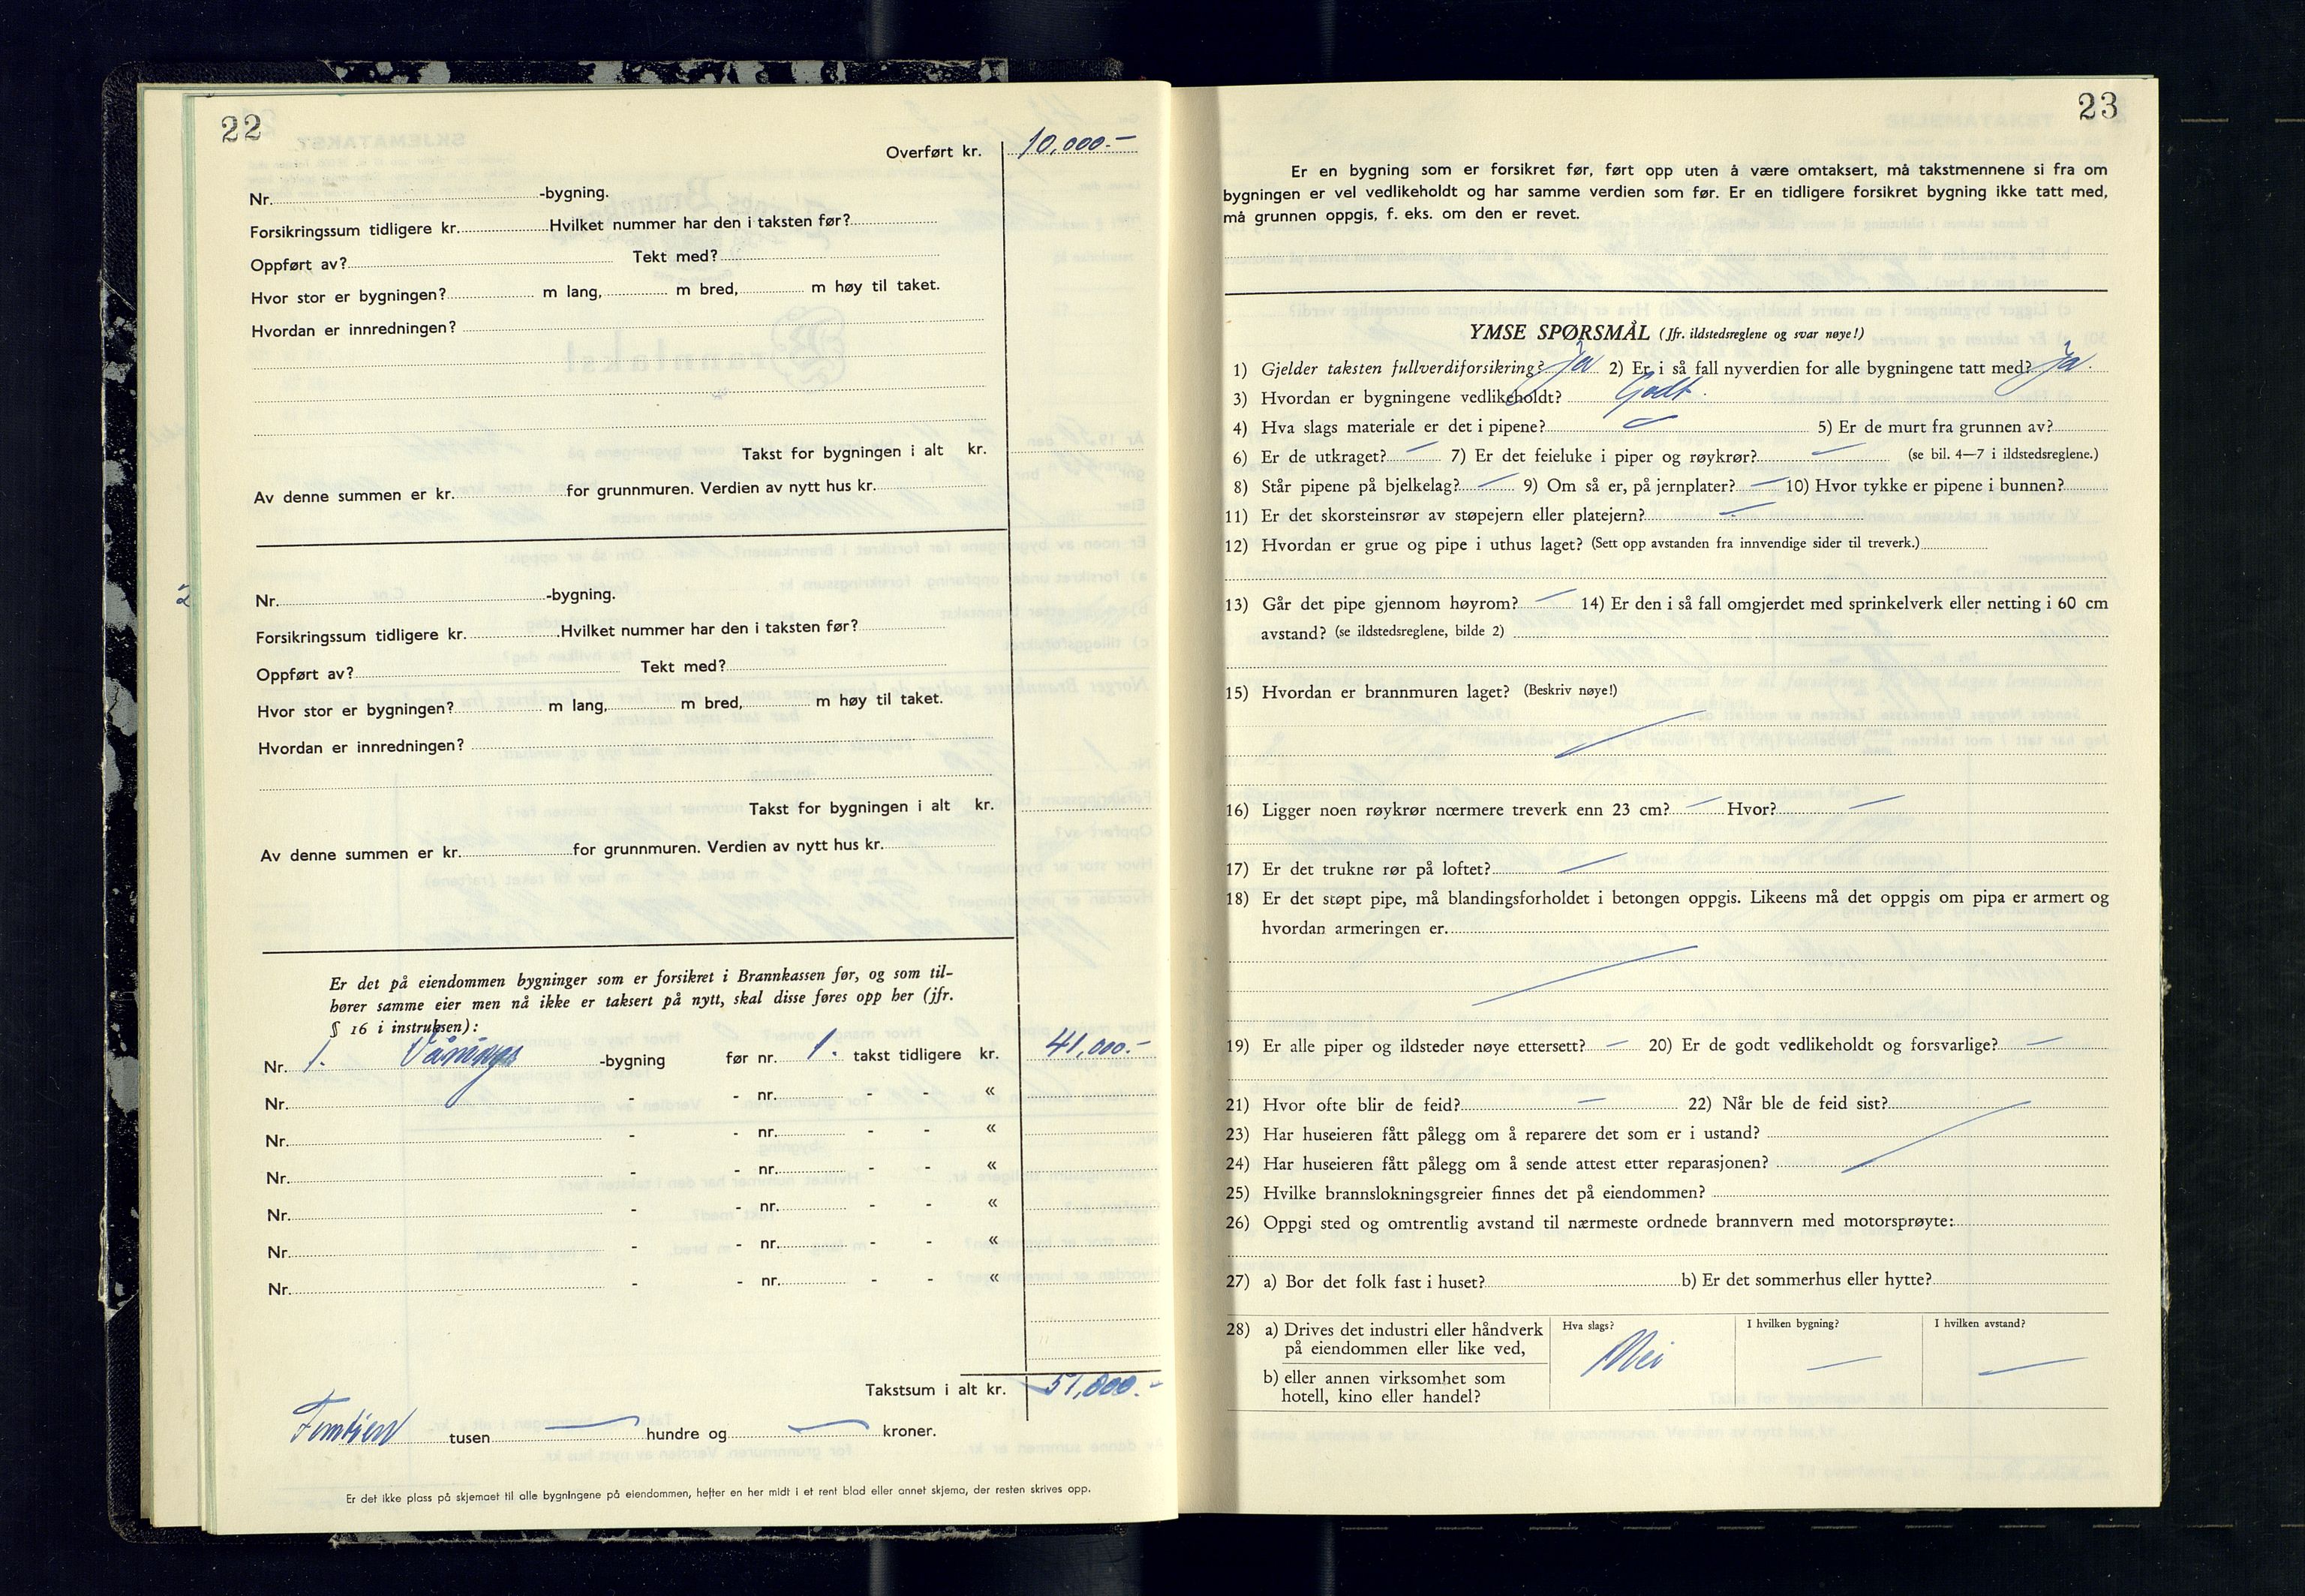 22
Overført kr. 10,000.-
Nr. -bygning.
Forsikringssum tidligere kr. Hvilket nummer har den i taksten før?
Oppført av? Tekt med?
Hvor stor er bygningen? m lang, m bred, m høy til taket.
Hvordan er innredningen?
Takst for bygningen i alt kr.
Av denne summen er kr. for grunnmuren. Verdien av nytt hus kr.
2
Nr. -bygning.
Forsikringssum tidligere kr. Hvilket nummer har den i taksten før?
Oppført av? Tekt med?
Hvor stor er bygningen? m lang, m bred, m høy til taket.
Hvordan er innredningen?
Takst for bygningen i alt kr.
Av denne summen er kr. for grunnmuren. Verdien av nytt hus kr.
Er det på eiendommen bygninger som er forsikret i Brannkassen før, og som til-
hører samme eier men nå ikke er taksert på nytt, skal disse føres opp her (jfr.
§ 16 i instruksen):
Nr. 1. Vånings -bygning før nr. 1. takst tidligere kr. 41,000.-
Nr. - - nr. - - «
Nr. - - nr. - - «
Nr. - - nr. - - «
Nr. - - nr. - - «
Nr. - - nr. - - «
Nr. - - nr. - - «
Takstsum i alt kr. 51,000.-
Femtien tusen — hundre og — kroner.
Er det ikke plass på skjemaet til alle bygningene på eiendommen, hefter en her midt i et rent blad eller annet skjema, der resten skrives opp.
23
Er en bygning som er forsikret før, ført opp uten å være omtaksert, må takstmennene si fra om
bygningen er vel vedlikeholdt og har samme verdien som før. Er en tidligere forsikret bygning ikke tatt med,
må grunnen oppgis, f. eks. om den er revet.
YMSE SPØRSMÅL (Jfr. ildstedsreglene og svar nøye!)
1) Gjelder taksten fullverdiforsikring? Ja 2) Er i så fall nyverdien for alle bygningene tatt med? Ja.
3) Hvordan er bygningene vedlikeholdt? Godt.
4) Hva slags materiale er det i pipene? — 5) Er de murt fra grunnen av?
6) Er de utkraget? — 7) Er det feieluke i piper og røykrør? — (se bil. 4—7 i ildstedsreglene.)
8) Står pipene på bjelkelag? — 9) Om så er, på jernplater? — 10) Hvor tykke er pipene i bunnen?
11) Er det skorsteinsrør av støpejern eller platejern? —
12) Hvordan er grue og pipe i uthus laget? (Sett opp avstanden fra innvendige sider til treverk.)
13) Går det pipe gjennom høyrom? — 14) Er den i så fall omgjerdet med sprinkelverk eller netting i 60 cm
avstand? (se ildstedsreglene, bilde 2)
15) Hvordan er brannmuren laget? (Beskriv nøye!)
—
16) Ligger noen røykrør nærmere treverk enn 23 cm? — Hvor? —
17) Er det trukne rør på loftet? —
18) Er det støpt pipe, må blandingsforholdet i betongen oppgis. Likeens må det oppgis om pipa er armert og
hvordan armeringen er.
—
19) Er alle piper og ildsteder nøye ettersett? — 20) Er de godt vedlikeholdt og forsvarlige? —
21) Hvor ofte blir de feid? — 22) Når ble de feid sist?
23) Har huseieren fått pålegg om å reparere det som er i ustand?
24) Har huseieren fått pålegg om å sende attest etter reparasjonen? —
25) Hvilke brannslokningsgreier finnes det på eiendommen?
26) Oppgi sted og omtrentlig avstand til nærmeste ordnede brannvern med motorsprøyte:
27) a) Bor det folk fast i huset? b) Er det sommerhus eller hytte?
28) a) Drives det industri eller håndverk
på eiendommen eller like ved,
b) eller annen virksomhet som
hotell, kino eller handel?
Hva slags? I hvilken bygning? I hvilken avstand?
Nei — —